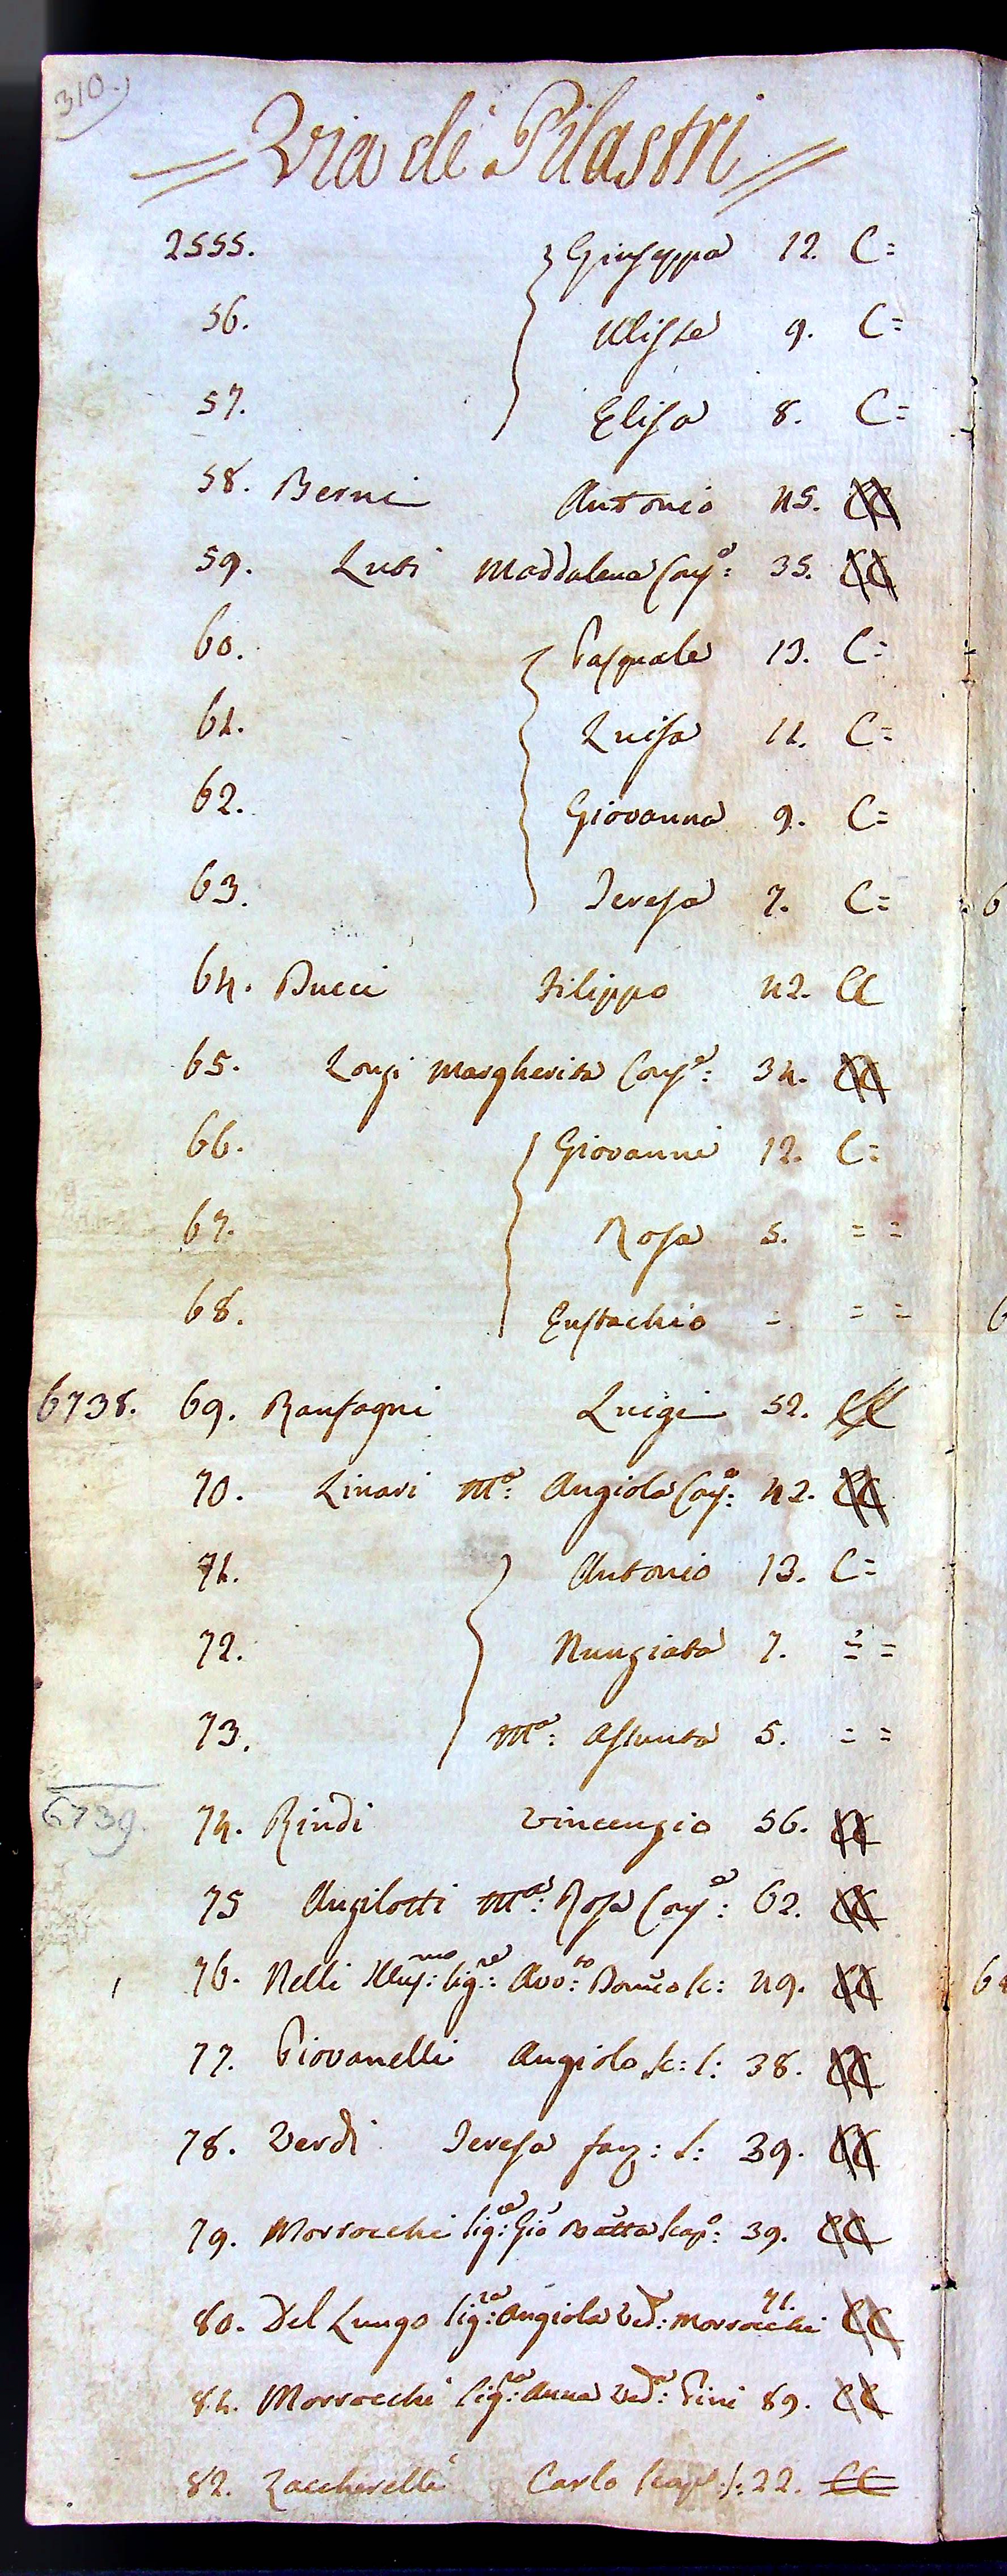 310.
= Via de' Pilastri =
2555. Giuseppa 12. C=
56. Ulisse 9. C=
57. Elisa 8. C=
58. Berni Antonio 45. CC
59. Luti Maddalena Conj.e: 35. CC
60. Pasquale 13. C=
61. Luisa 11. C=
62. Giovanna 9. C=
63. Teresa 7. C=
64. Bucci Filippo 42. CC
65. Longi Margherita Conj.e: 34. CC
66. Giovanni 12. C=
67. Rosa 5. = =
68. Eustachio = = =
6738. 69. Ranfagni Luigi 52. CC
70. Linari M.a: Angiola Conj.e: 42. CC
71. Antonio 13. C=
72. Nunziata 7. = =
73. M.a: Assunta 5. = =
6739. 74. Rindi Vincenzio 56. CC
75 Angilotti M.a: Rosa Conj.e: 62. CC
76. Nelli Illus.mo: Sig.re: Avv.to: Domco S.c: 49. CC
77. Piovanelli Angiolo S.c: S: 38. CC
78. Verdi Teresa fan: S: 39. CC
79. Morrocchi Sig.e: Gio Batta Scap.o: 39. CC
80. Del Lungo Sig.ra: Angiola Ved.a: Morrocchi 71. CC
81. Morrocchi Sig.ra: Anna Ved.a: Pini 89. CC
82. Zaccherelli Carlo Scapl: S: 22. CC